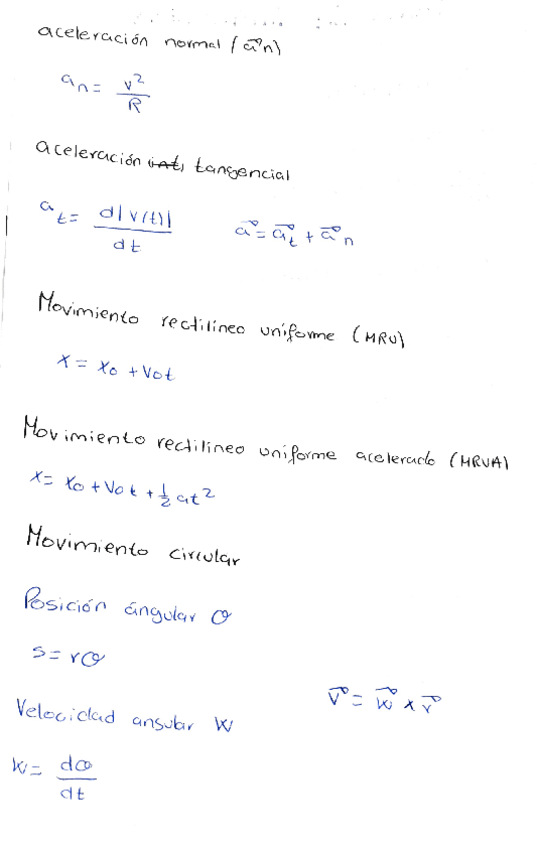 aceleración normal (a⃗n)
an = v²/R
aceleración tangencial
at = d|v(t)|/dt    a⃗ = a⃗t + a⃗n
Movimiento rectilineo uniforme (MRU)
x = x0 + v0t
Movimiento rectilineo uniforme acelerado (MRUA)
x = x0 + v0t + ½at²
Movimiento circular
Posición ángular θ
s = rθ
Velocidad angular w    v⃗ = w⃗ x r⃗
w = dθ/dt